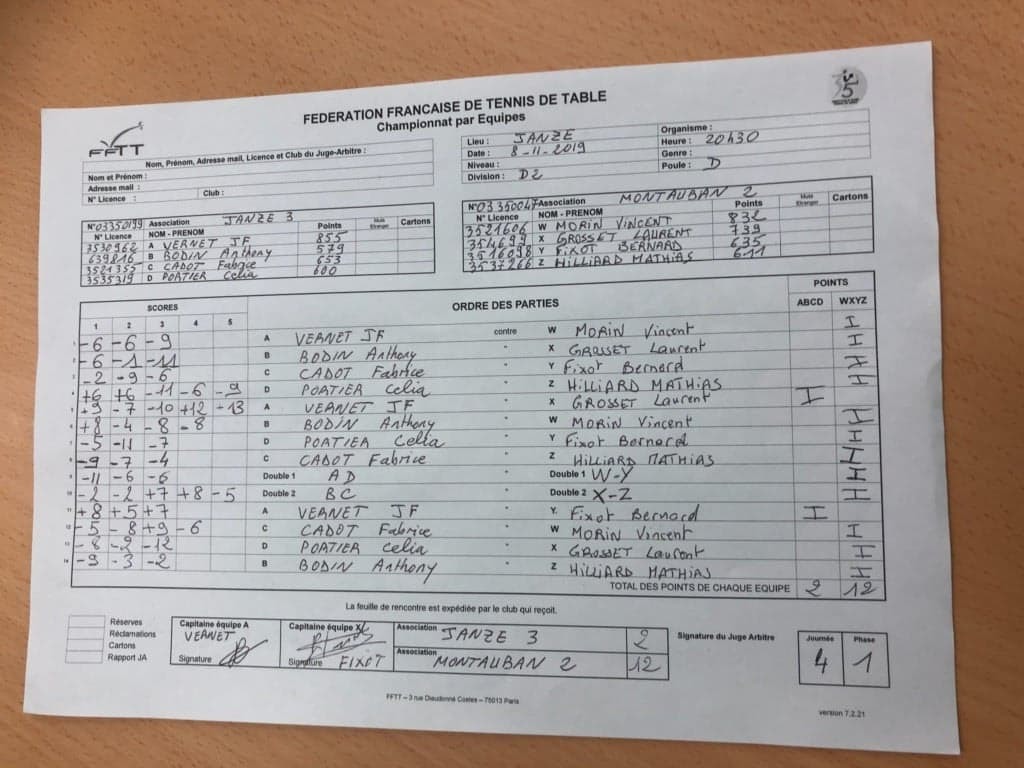 FEDERATION FRANCAISE DE TENNIS DE TABLE
Championnat par Equipes
FFTT
Nom, Prénom, Adresse mail, Licence et Club du Juge-Arbitre :
Nom et Prénom :
Adresse mail :
N° Licence : Club :
Lieu : JANZE
Date : 8-11-2019
Niveau :
Division : D2
Organisme :
Heure : 20h30
Genre :
Poule : D
N°03350199 Association JANZE 3
N° Licence NOM - PRENOM Points Cartons
3530962 A VERNET JF 855
639816 B BODIN Anthony 579
3521355 C CADOT Fabrice 653
3535319 D PORTIER Celia 600
N°03350047 Association MONTAUBAN 2
N° Licence NOM - PRENOM Points Cartons
3521606 W MORIN VINCENT 832
354699 X GROSSET LAURENT 739
3516098 Y FIXOT BERNARD 635
3537266 Z HILLIARD MATHIAS 611
SCORES ORDRE DES PARTIES POINTS
1 2 3 4 5 ABCD WXYZ
1 -6 -6 -9 A VERNET JF contre W MORIN Vincent I
2 -6 -1 -11 B BODIN Anthony " X GROSSET Laurent I
3 -2 -9 -6 C CADOT Fabrice " Y Fixot Bernard I
4 +6 +6 -11 -6 -9 D PORTIER Celia " Z HILLIARD MATHIAS I
5 +9 -7 -10 +12 -13 A VERNET JF " X GROSSET Laurent I
6 +8 -4 -8 -8 B BODIN Anthony " W MORIN Vincent I
7 -5 -11 -7 D PORTIER Celia " Y Fixot Bernard I
8 -9 -7 -4 C CADOT Fabrice " Z HILLIARD MATHIAS I
9 -11 -6 -6 Double 1 AD " Double 1 W-Y I
10 -2 -2 +7 +8 -5 Double 2 BC " Double 2 X-Z I
11 +8 +5 +7 A VERNET JF " Y Fixot Bernard I
12 -5 -8 +9 -6 C CADOT Fabrice " W MORIN Vincent I
13 -8 -2 -12 D PORTIER Celia " X GROSSET Laurent I
14 -9 -3 -2 B BODIN Anthony " Z HILLIARD MATHIAS I
TOTAL DES POINTS DE CHAQUE EQUIPE 2 12
La feuille de rencontre est expédiée par le club qui reçoit.
Réserves
Réclamations
Cartons
Rapport JA
Capitaine équipe A
VERNET
Signature
Capitaine équipe X
Signature FIXOT
Association JANZE 3 2
Association MONTAUBAN 2 12
Signature du Juge Arbitre
Journée Phase
4 1
FFTT – 3 rue Dieudonné Costes – 75013 Paris
version 7.2.21